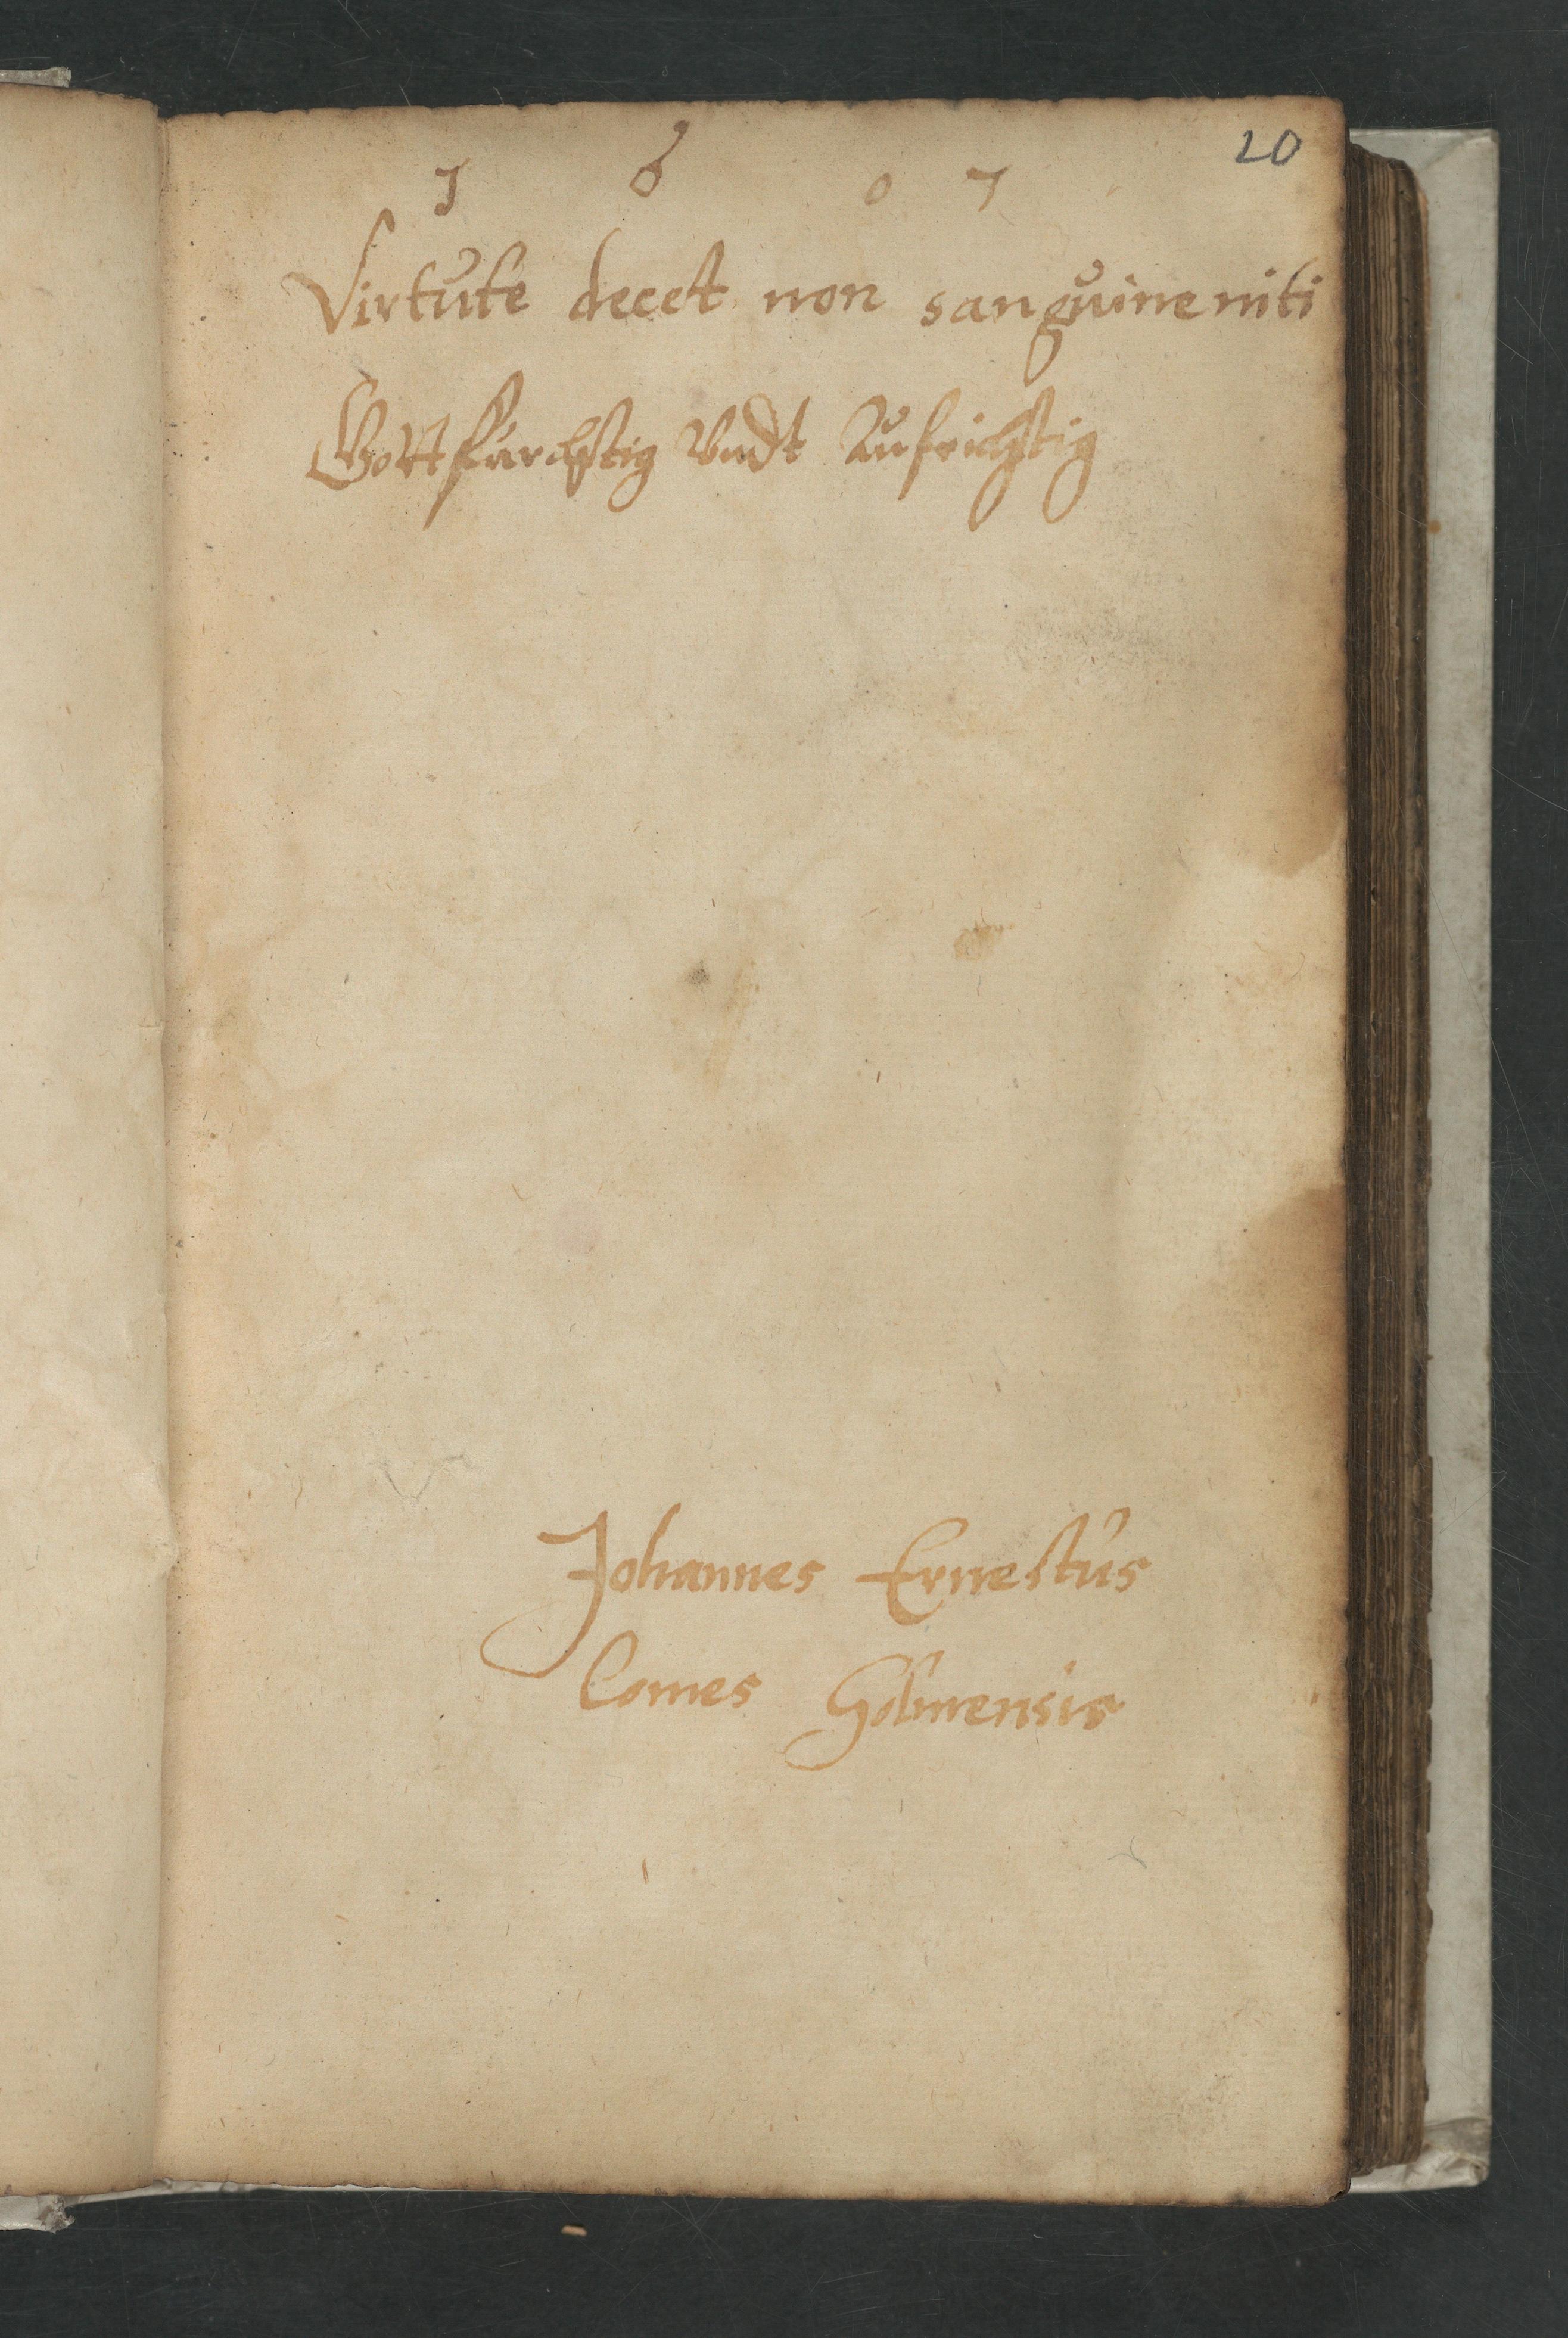 20
1 6 0 7
Virtute decet non sanguine niti
Gottfürchtig Vndt Aufrichtig
Johannes Ernestus
Comes Solmensis